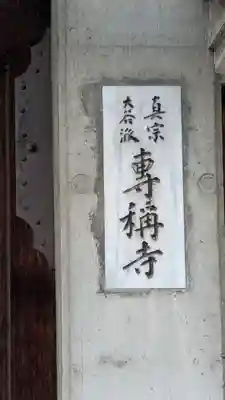 真宗
大谷派
専稱寺